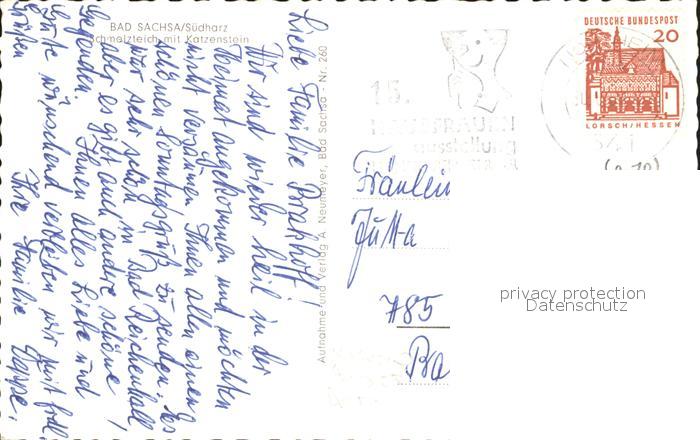 BAD SACHSA/Südharz
Schmelzteich mit Katzenstein
Liebe Familie
Wir sind wieder heil in der
Heimat angekommen und möchten
nicht versäumen Ihnen allen einen
schönen Sonntagsgruß zu senden. Es
war sehr schön in Bad Reichenhall
aber es gibt auch andre schöne
Gegenden. Ihnen alles Liebe und
Gute wünschend verbleiben wir mit frdl.
Grüßen Ihre Familie
Aufnahme und Verlag A. Neumeyer, Bad Sachsa - Nr. 260
15.
HAUSFRAUEN
ausstellung
DEUTSCHE BUNDESPOST
20
LORSCH/HESSEN
Fräulein
Jutta
785
Ba
privacy protection
Datenschutz